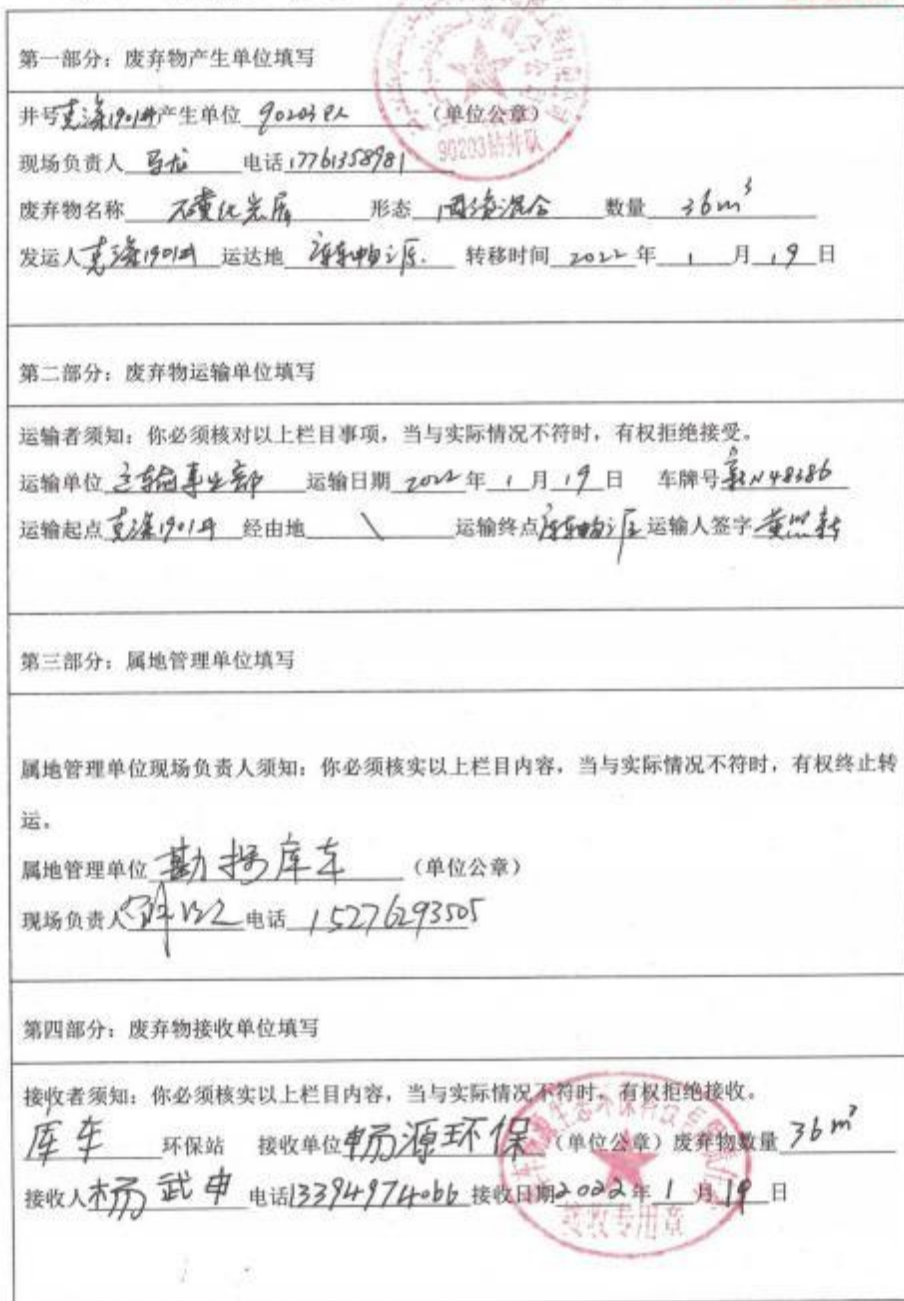 第一部分：废弃物产生单位填写
井号克深1901井产生单位 90203队 （单位公章）
90203钻井队
现场负责人 马龙 电话17761358981
废弃物名称 磺化岩屑 形态 固液混合 数量 36m³
发运人克深1901井 运达地 库车畅源 转移时间 2022 年 1 月 19 日
第二部分：废弃物运输单位填写
运输者须知：你必须核对以上栏目事项，当与实际情况不符时，有权拒绝接受。
运输单位 运输事业部 运输日期 2022 年 1 月 19 日 车牌号新N48386
运输起点 克深1901井 经由地 \ 运输终点库车畅源 运输人签字
第三部分：属地管理单位填写
属地管理单位现场负责人须知：你必须核实以上栏目内容，当与实际情况不符时，有权终止转
运。
属地管理单位 勘探库车 （单位公章）
现场负责人 电话 15276293505
第四部分：废弃物接收单位填写
接收者须知：你必须核实以上栏目内容，当与实际情况不符时，有权拒绝接收。
库车 环保站 接收单位畅源环保（单位公章）废弃物数量 36m³
接收人杨武申 电话13394974066 接收日期2022年 1 月 19 日
接收专用章